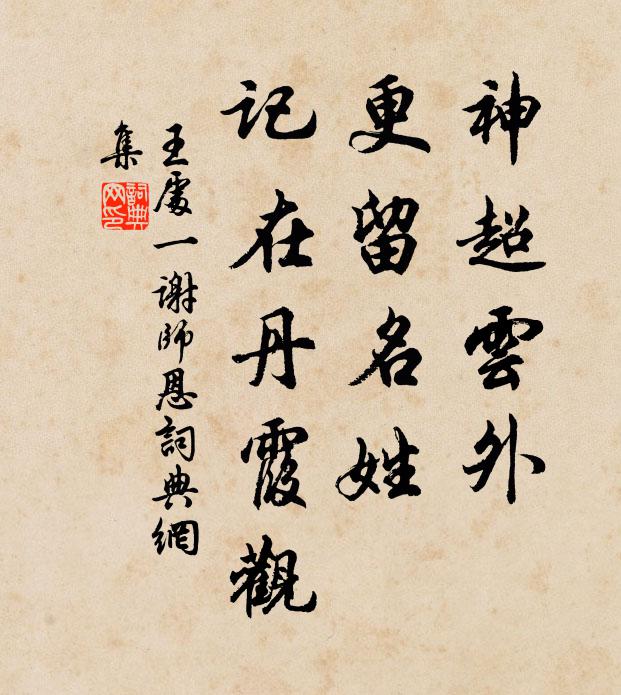 神超雲外
更留名姓
記在丹霞觀
王處一謝師恩詞典網
集
詞典網印